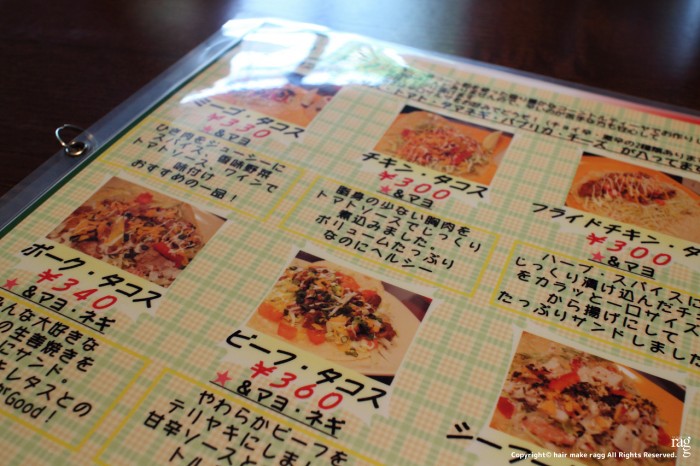 ピーマン・タマネギ・パプリカ・チーズ が入ってま
ミート・タコス
¥330
★&マヨ
ひき肉をジューシーに
トマトソース、香味野菜
ソース、ワインで
味付け
おすすめの一品!
チキン・タコス
¥300
★&マヨ
脂身の少ない胸肉を
トマトソースでじっくり
煮込みました。
ボリュームたっぷり
なのにヘルシー
フライドチキン・タ
¥300
★&マヨ
ハーブ・スパイスに
じっくり漬け込んだチキ
をカラッと一口サイズ
から揚げにして
たっぷりサンドしました
ポーク・タコス
¥340
★&マヨ・ネギ
んな大好きな
の生姜焼きを
にサンド・
レタスとの
Good!
ビーフ・タコス
¥360
★&マヨ・ネギ
やわらかビーフを
テリヤキにしま
甘辛ソースと
シーフ
ragg
Copyright© hair make ragg All Rights Reserved.